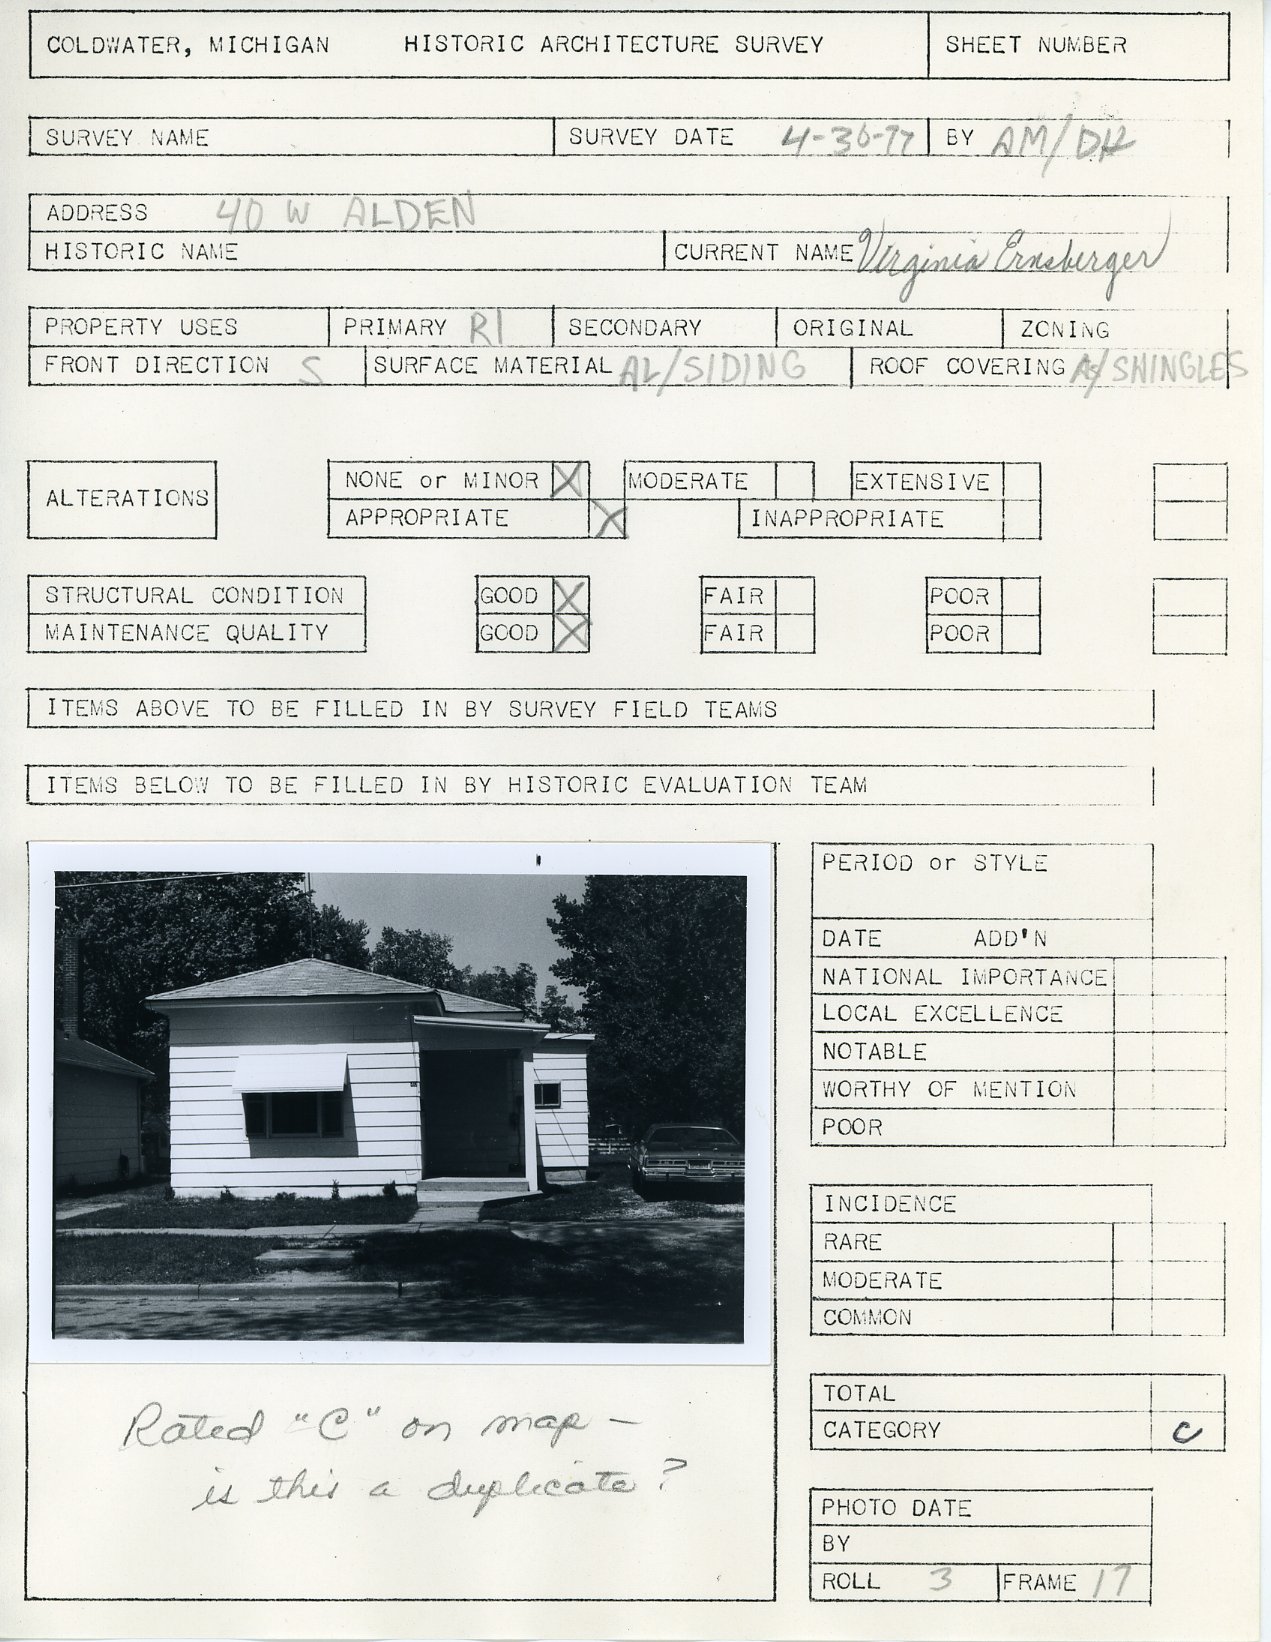 COLDWATER, MICHIGAN HISTORIC ARCHITECTURE SURVEY SHEET NUMBER
SURVEY NAME SURVEY DATE 4-30-77 BY AM/DH
ADDRESS 40 W ALDEN
HISTORIC NAME CURRENT NAME Virginia Ernsberger
PROPERTY USES PRIMARY R1 SECONDARY ORIGINAL ZONING
FRONT DIRECTION S SURFACE MATERIAL AL/SIDING ROOF COVERING As/SHINGLES
ALTERATIONS
NONE or MINOR X MODERATE EXTENSIVE
APPROPRIATE X INAPPROPRIATE
STRUCTURAL CONDITION GOOD X FAIR POOR
MAINTENANCE QUALITY GOOD X FAIR POOR
ITEMS ABOVE TO BE FILLED IN BY SURVEY FIELD TEAMS
ITEMS BELOW TO BE FILLED IN BY HISTORIC EVALUATION TEAM
PERIOD or STYLE
DATE ADD'N
NATIONAL IMPORTANCE
LOCAL EXCELLENCE
NOTABLE
WORTHY OF MENTION
POOR
INCIDENCE
RARE
MODERATE
COMMON
TOTAL
CATEGORY C
Rated "C" on map –
is this a duplicate?
PHOTO DATE
BY
ROLL 3 FRAME 17